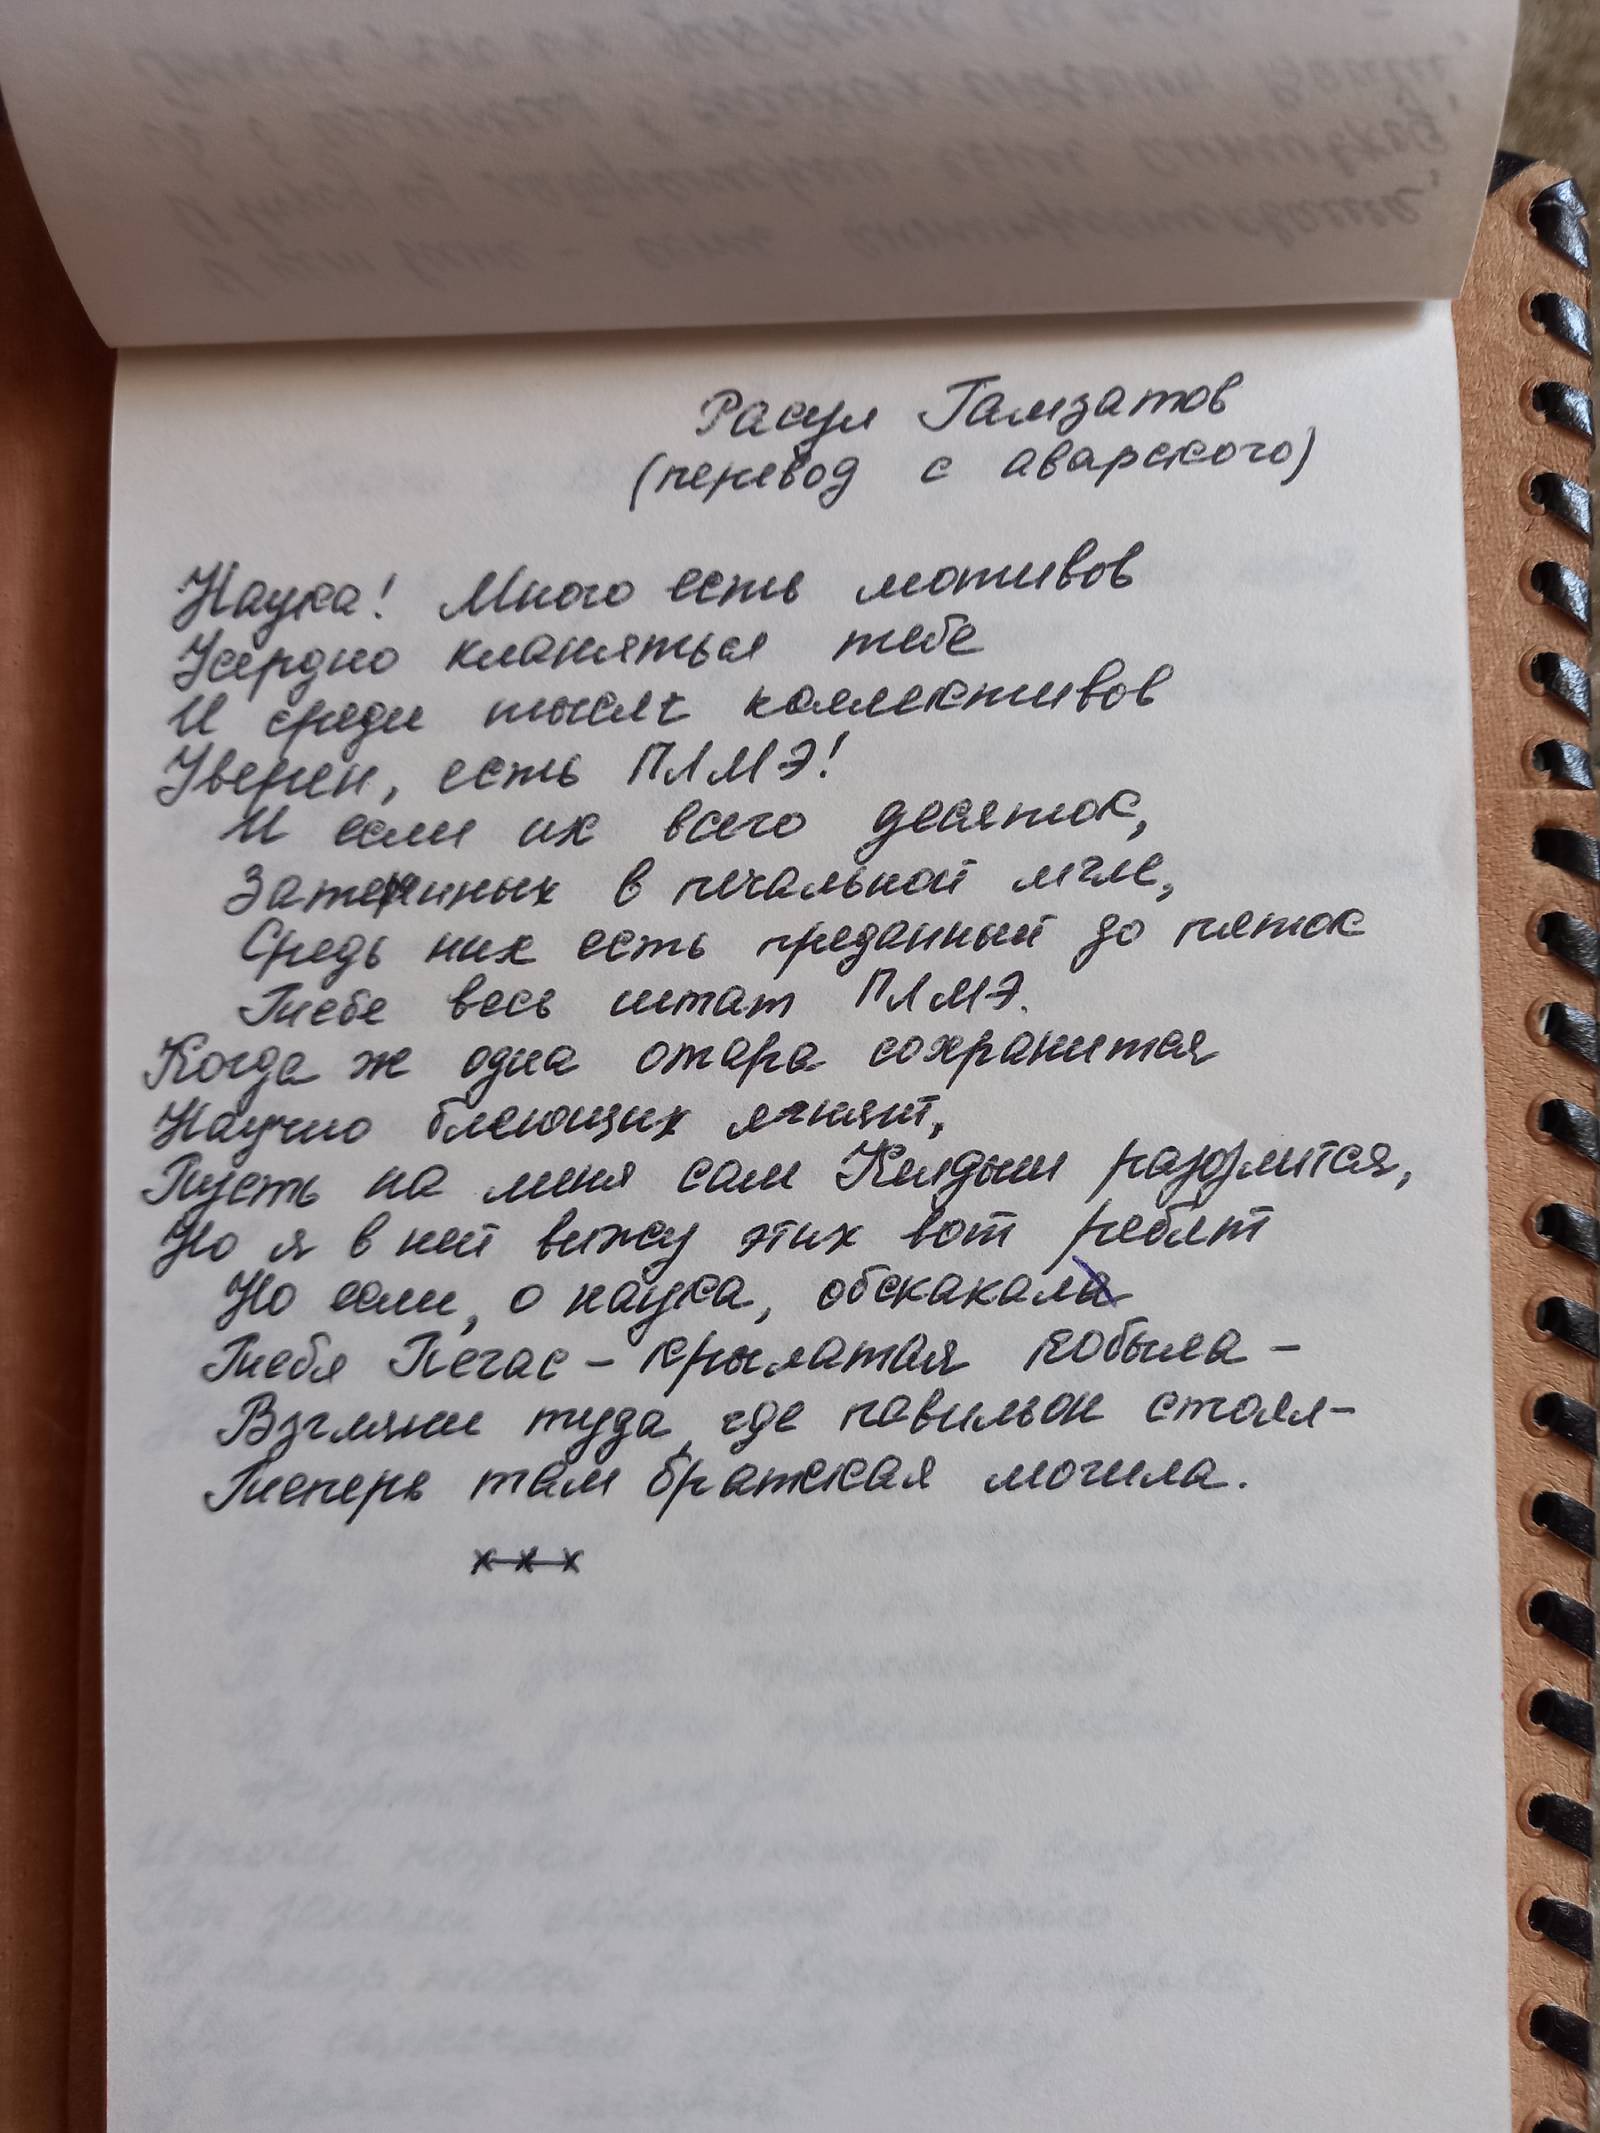 Расул Гамзатов
(перевод с аварского)
Наука! Много есть мотивов
Усердно кланяться тебе
И среди тысяч коллективов
Уверен, есть ПЛМЭ!
И если их всего десяток,
Затерянных в печальной мгле,
Средь них есть преданный до пяток
Тебе весь штат ПЛМЭ.
Когда ж одна отара сохранится
Научно блеющих ягнят,
Пусть на меня сам Келдыш разозлится,
Но я в ней вижу этих вот ребят
Но если, о наука, обскакала
Тебя Пегас – крылатая кобыла –
Взгляни туда, где павильон стоял –
Теперь там братская могила.
х х х